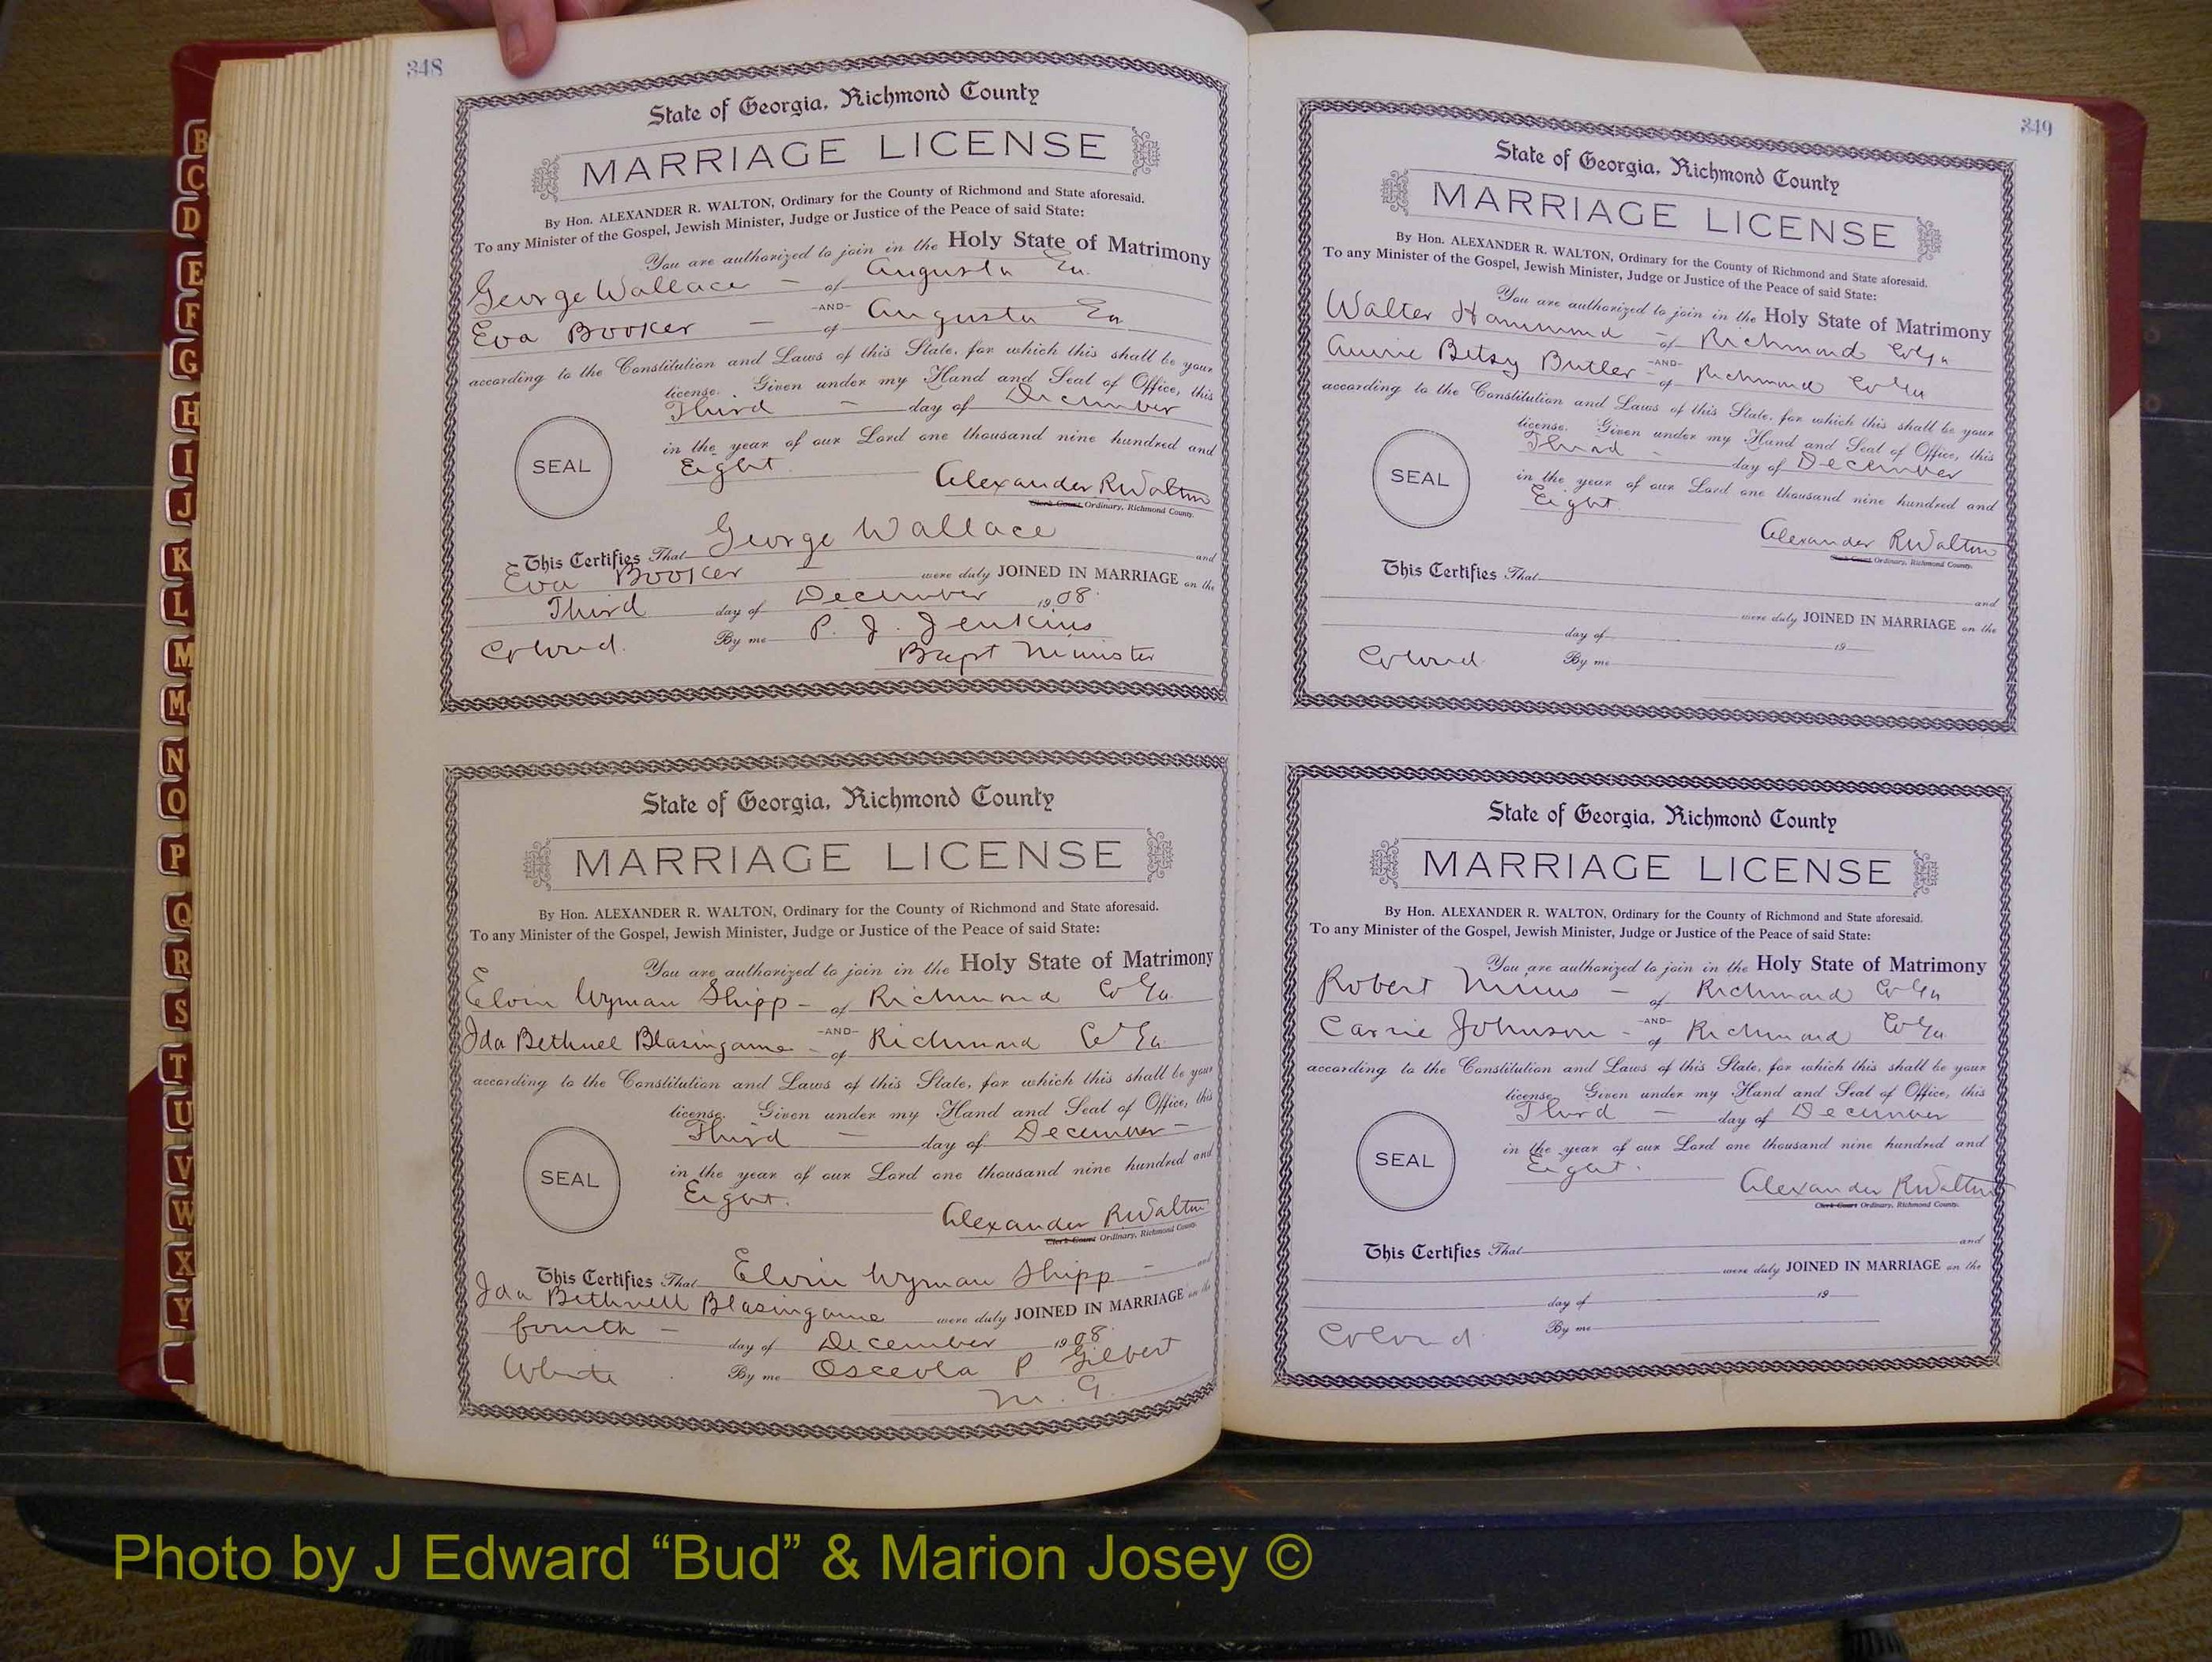 348
State of Georgia, Richmond County
MARRIAGE LICENSE
By Hon. ALEXANDER R. WALTON, Ordinary for the County of Richmond and State aforesaid.
To any Minister of the Gospel, Jewish Minister, Judge or Justice of the Peace of said State:
You are authorized to join in the Holy State of Matrimony
George Wallace - of Augusta Ga.
-AND-
Eva Booker - of Augusta Ga
according to the Constitution and Laws of this State, for which this shall be your
license. Given under my Hand and Seal of Office, this
Third - day of December
in the year of our Lord one thousand nine hundred and
SEAL
Eight
Alexander R Walton
Clerk Court Ordinary, Richmond County.
This Certifies That George Wallace and
Eva Booker were duly JOINED IN MARRIAGE on the
Third day of December 1908.
Colored. By me P. J. Jenkins
Bapt Minister
State of Georgia, Richmond County
MARRIAGE LICENSE
By Hon. ALEXANDER R. WALTON, Ordinary for the County of Richmond and State aforesaid.
To any Minister of the Gospel, Jewish Minister, Judge or Justice of the Peace of said State:
You are authorized to join in the Holy State of Matrimony
Elvin Wyman Shipp - of Richmond Co Ga.
-AND-
Ida Bethuel Blasingame - of Richmond Co Ga.
according to the Constitution and Laws of this State, for which this shall be your
license. Given under my Hand and Seal of Office, this
Third - day of December -
in the year of our Lord one thousand nine hundred and
SEAL
Eight.
Alexander R Walton
Clerk Court Ordinary, Richmond County.
This Certifies That Elvin Wyman Shipp - and
Ida Bethuell Blasingame were duly JOINED IN MARRIAGE on the
fourth - day of December 1908.
White By me Osceola P Gilbert
M. G.
349
State of Georgia, Richmond County
MARRIAGE LICENSE
By Hon. ALEXANDER R. WALTON, Ordinary for the County of Richmond and State aforesaid.
To any Minister of the Gospel, Jewish Minister, Judge or Justice of the Peace of said State:
You are authorized to join in the Holy State of Matrimony
Walter Hammond - of Richmond Co Ga
-AND-
Annie Betsy Butler - of Richmond Co Ga
according to the Constitution and Laws of this State, for which this shall be your
license. Given under my Hand and Seal of Office, this
Third - day of December
in the year of our Lord one thousand nine hundred and
SEAL
Eight.
Alexander R Walton
Clerk Court Ordinary, Richmond County.
This Certifies That and
were duly JOINED IN MARRIAGE on the
day of 19
Colored By me
State of Georgia, Richmond County
MARRIAGE LICENSE
By Hon. ALEXANDER R. WALTON, Ordinary for the County of Richmond and State aforesaid.
To any Minister of the Gospel, Jewish Minister, Judge or Justice of the Peace of said State:
You are authorized to join in the Holy State of Matrimony
Robert Mims - of Richmond Co Ga
-AND-
Carrie Johnson - of Richmond Co Ga.
according to the Constitution and Laws of this State, for which this shall be your
license. Given under my Hand and Seal of Office, this
Third - day of December
in the year of our Lord one thousand nine hundred and
SEAL
Eight.
Alexander R Walton
Clerk Court Ordinary, Richmond County.
This Certifies That and
were duly JOINED IN MARRIAGE on the
day of 19
Colored By me
B
C
D
E
F
G
H
I
J
K
L
M
Mc
N
O
P
Q
R
S
T
U
V
W
X
Y
Photo by J Edward “Bud” & Marion Josey ©